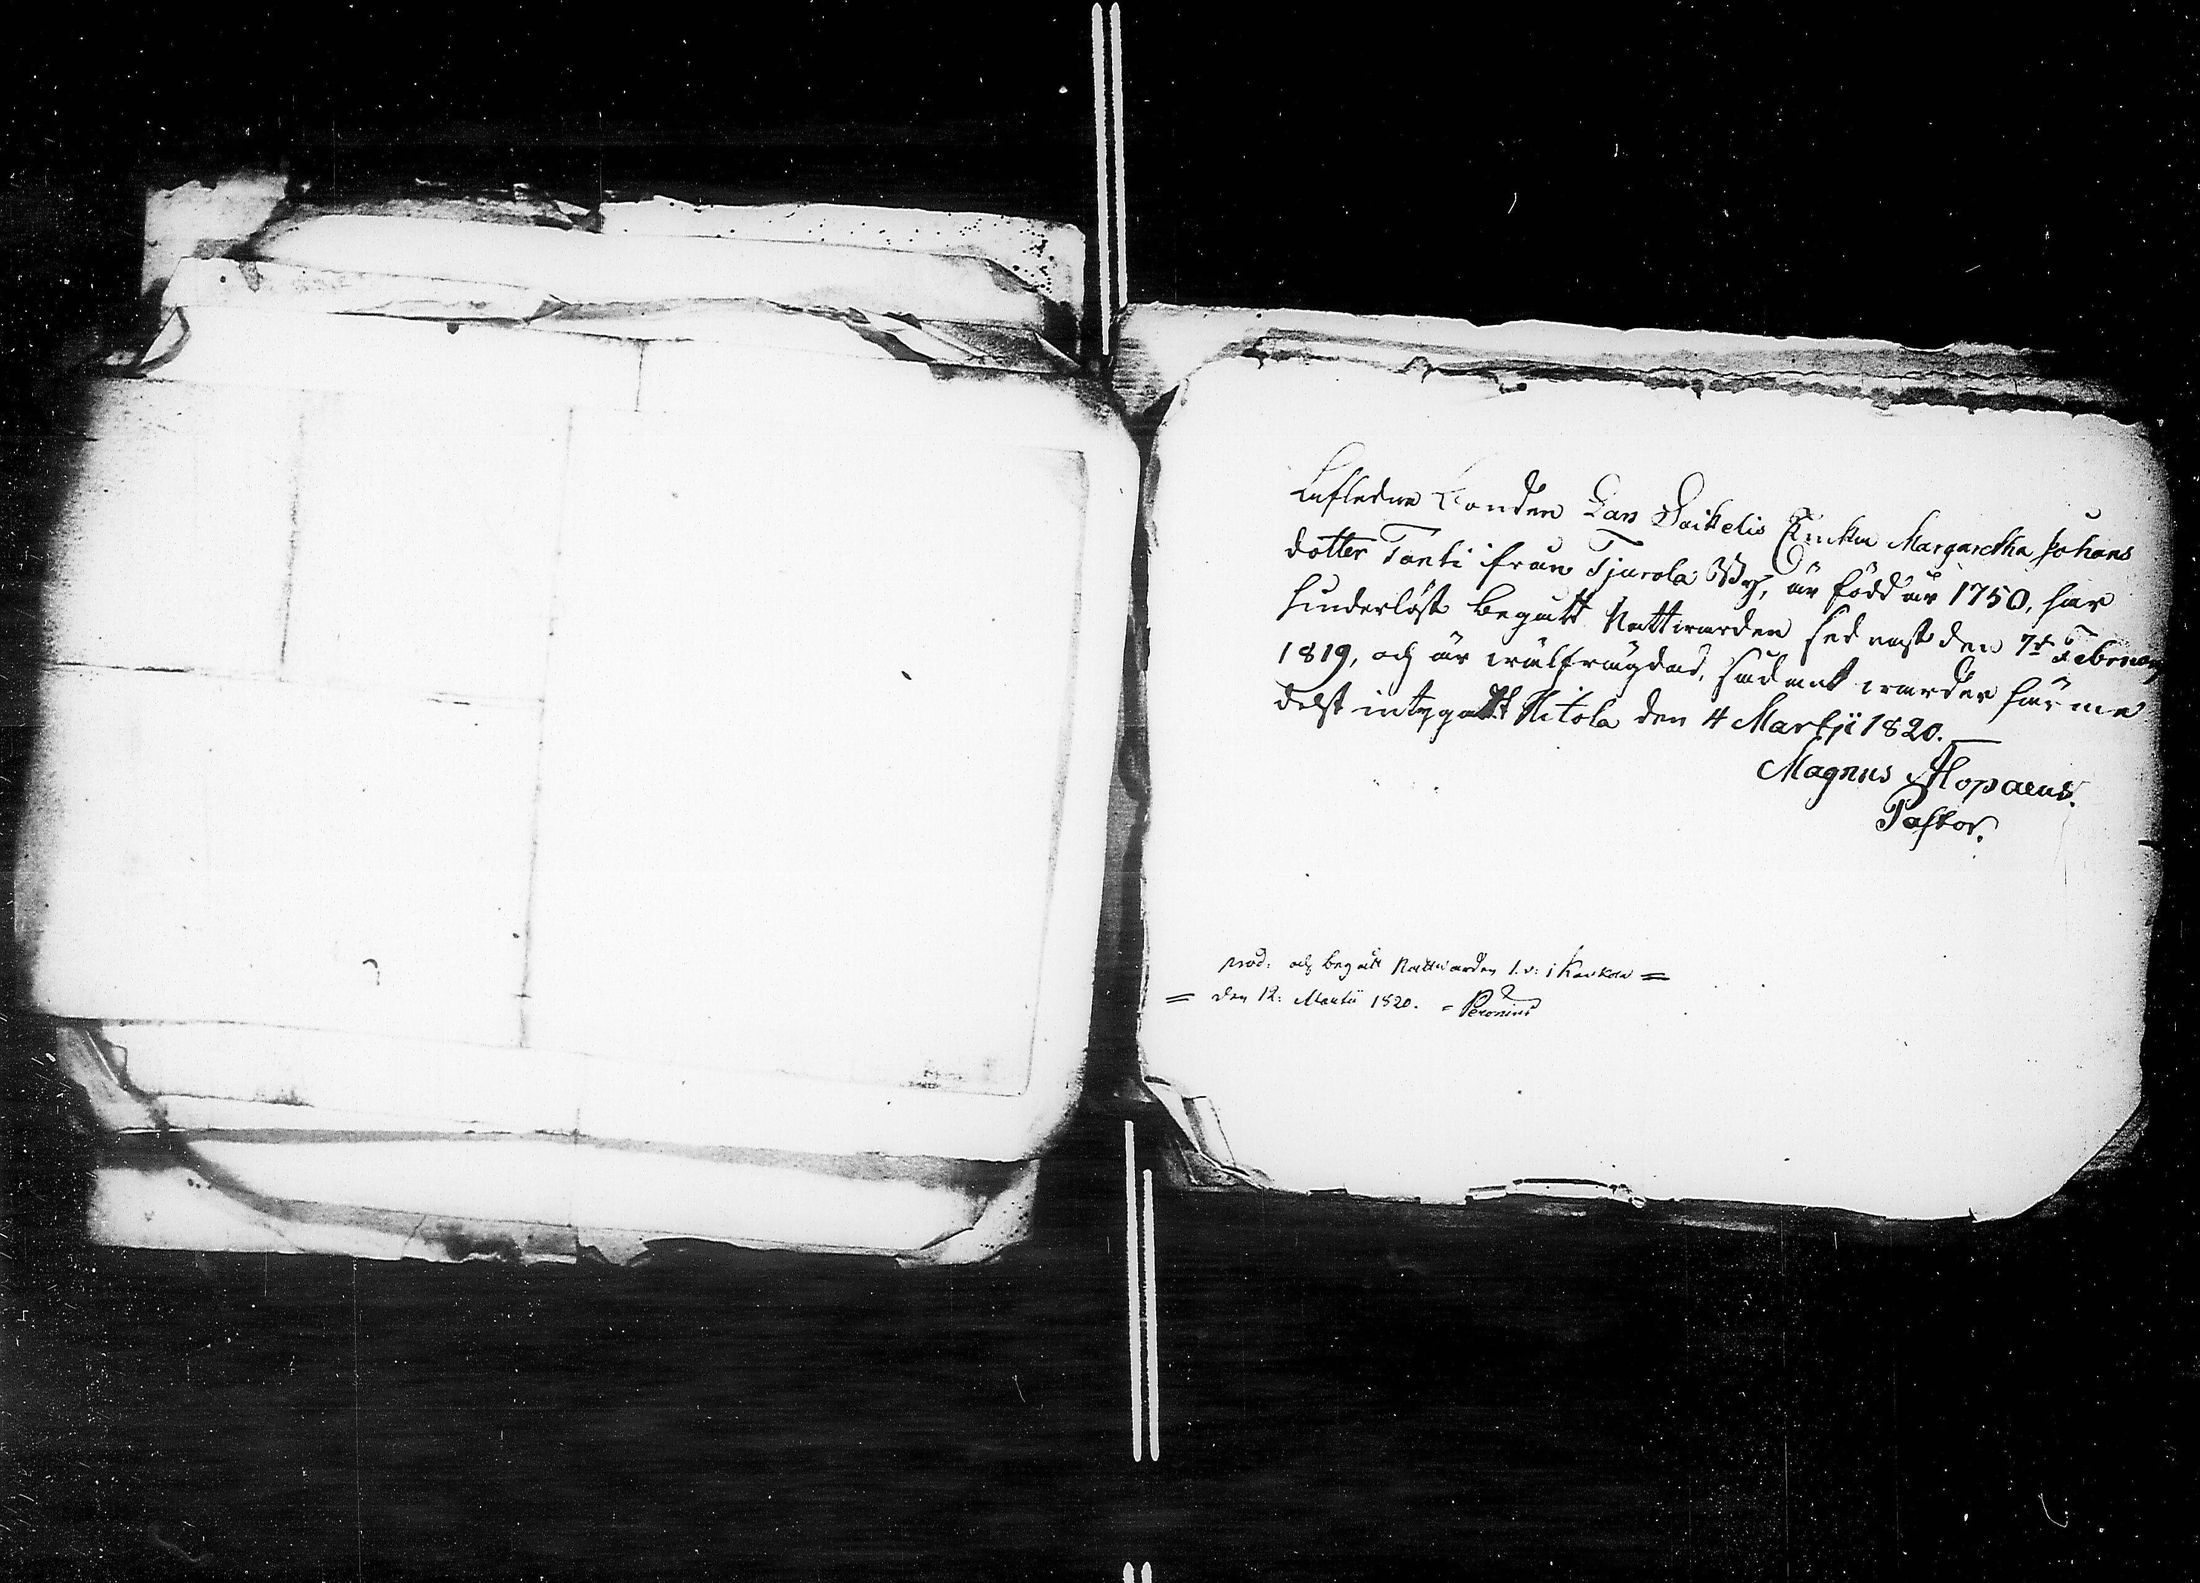 Afledne Bonden Lars Paikelis Enka Margaretha Johans
dotter Tanti ifrån Tjurola By, är född år 1750, har
hinderlöst begått Nattwarden sednast den 7de Februarii
1819, och är wälfrägdad, sådant warder härme
delst intygadt Hitola den 4 Martji 1820.
Magnus Alopaeus.
Pastor.
prod: och begått Nattwarden s. d: i Kaukola =
= den 12: Martii 1820. = Peronius